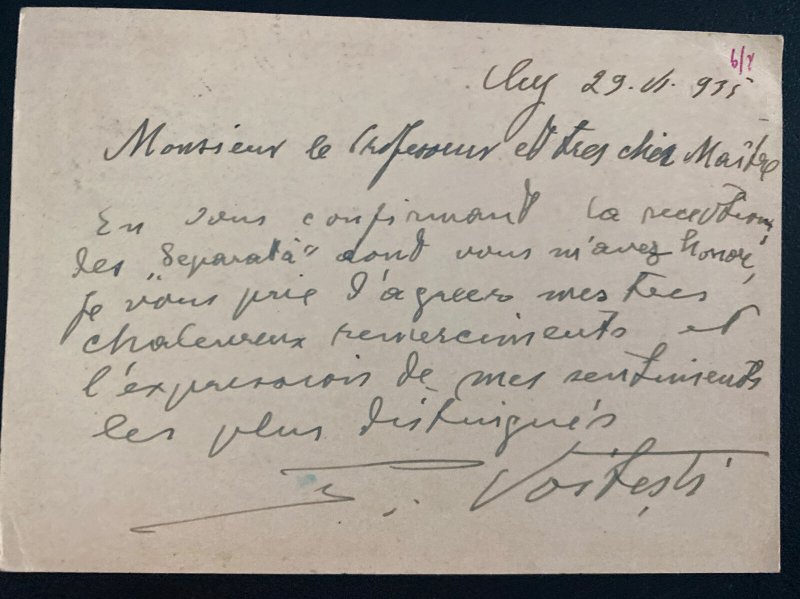 6/X
Cluj 29. VI. 935
Monsieur le Professeur et tres cher Maître
En vous confirmant la reception
des „Separata" dont vous m'avez honoré,
je vous prie d'agreer mes tres
chaleureux remerciments et
l'expression de mes sentiments
les plus distingués
I. Voiteşti